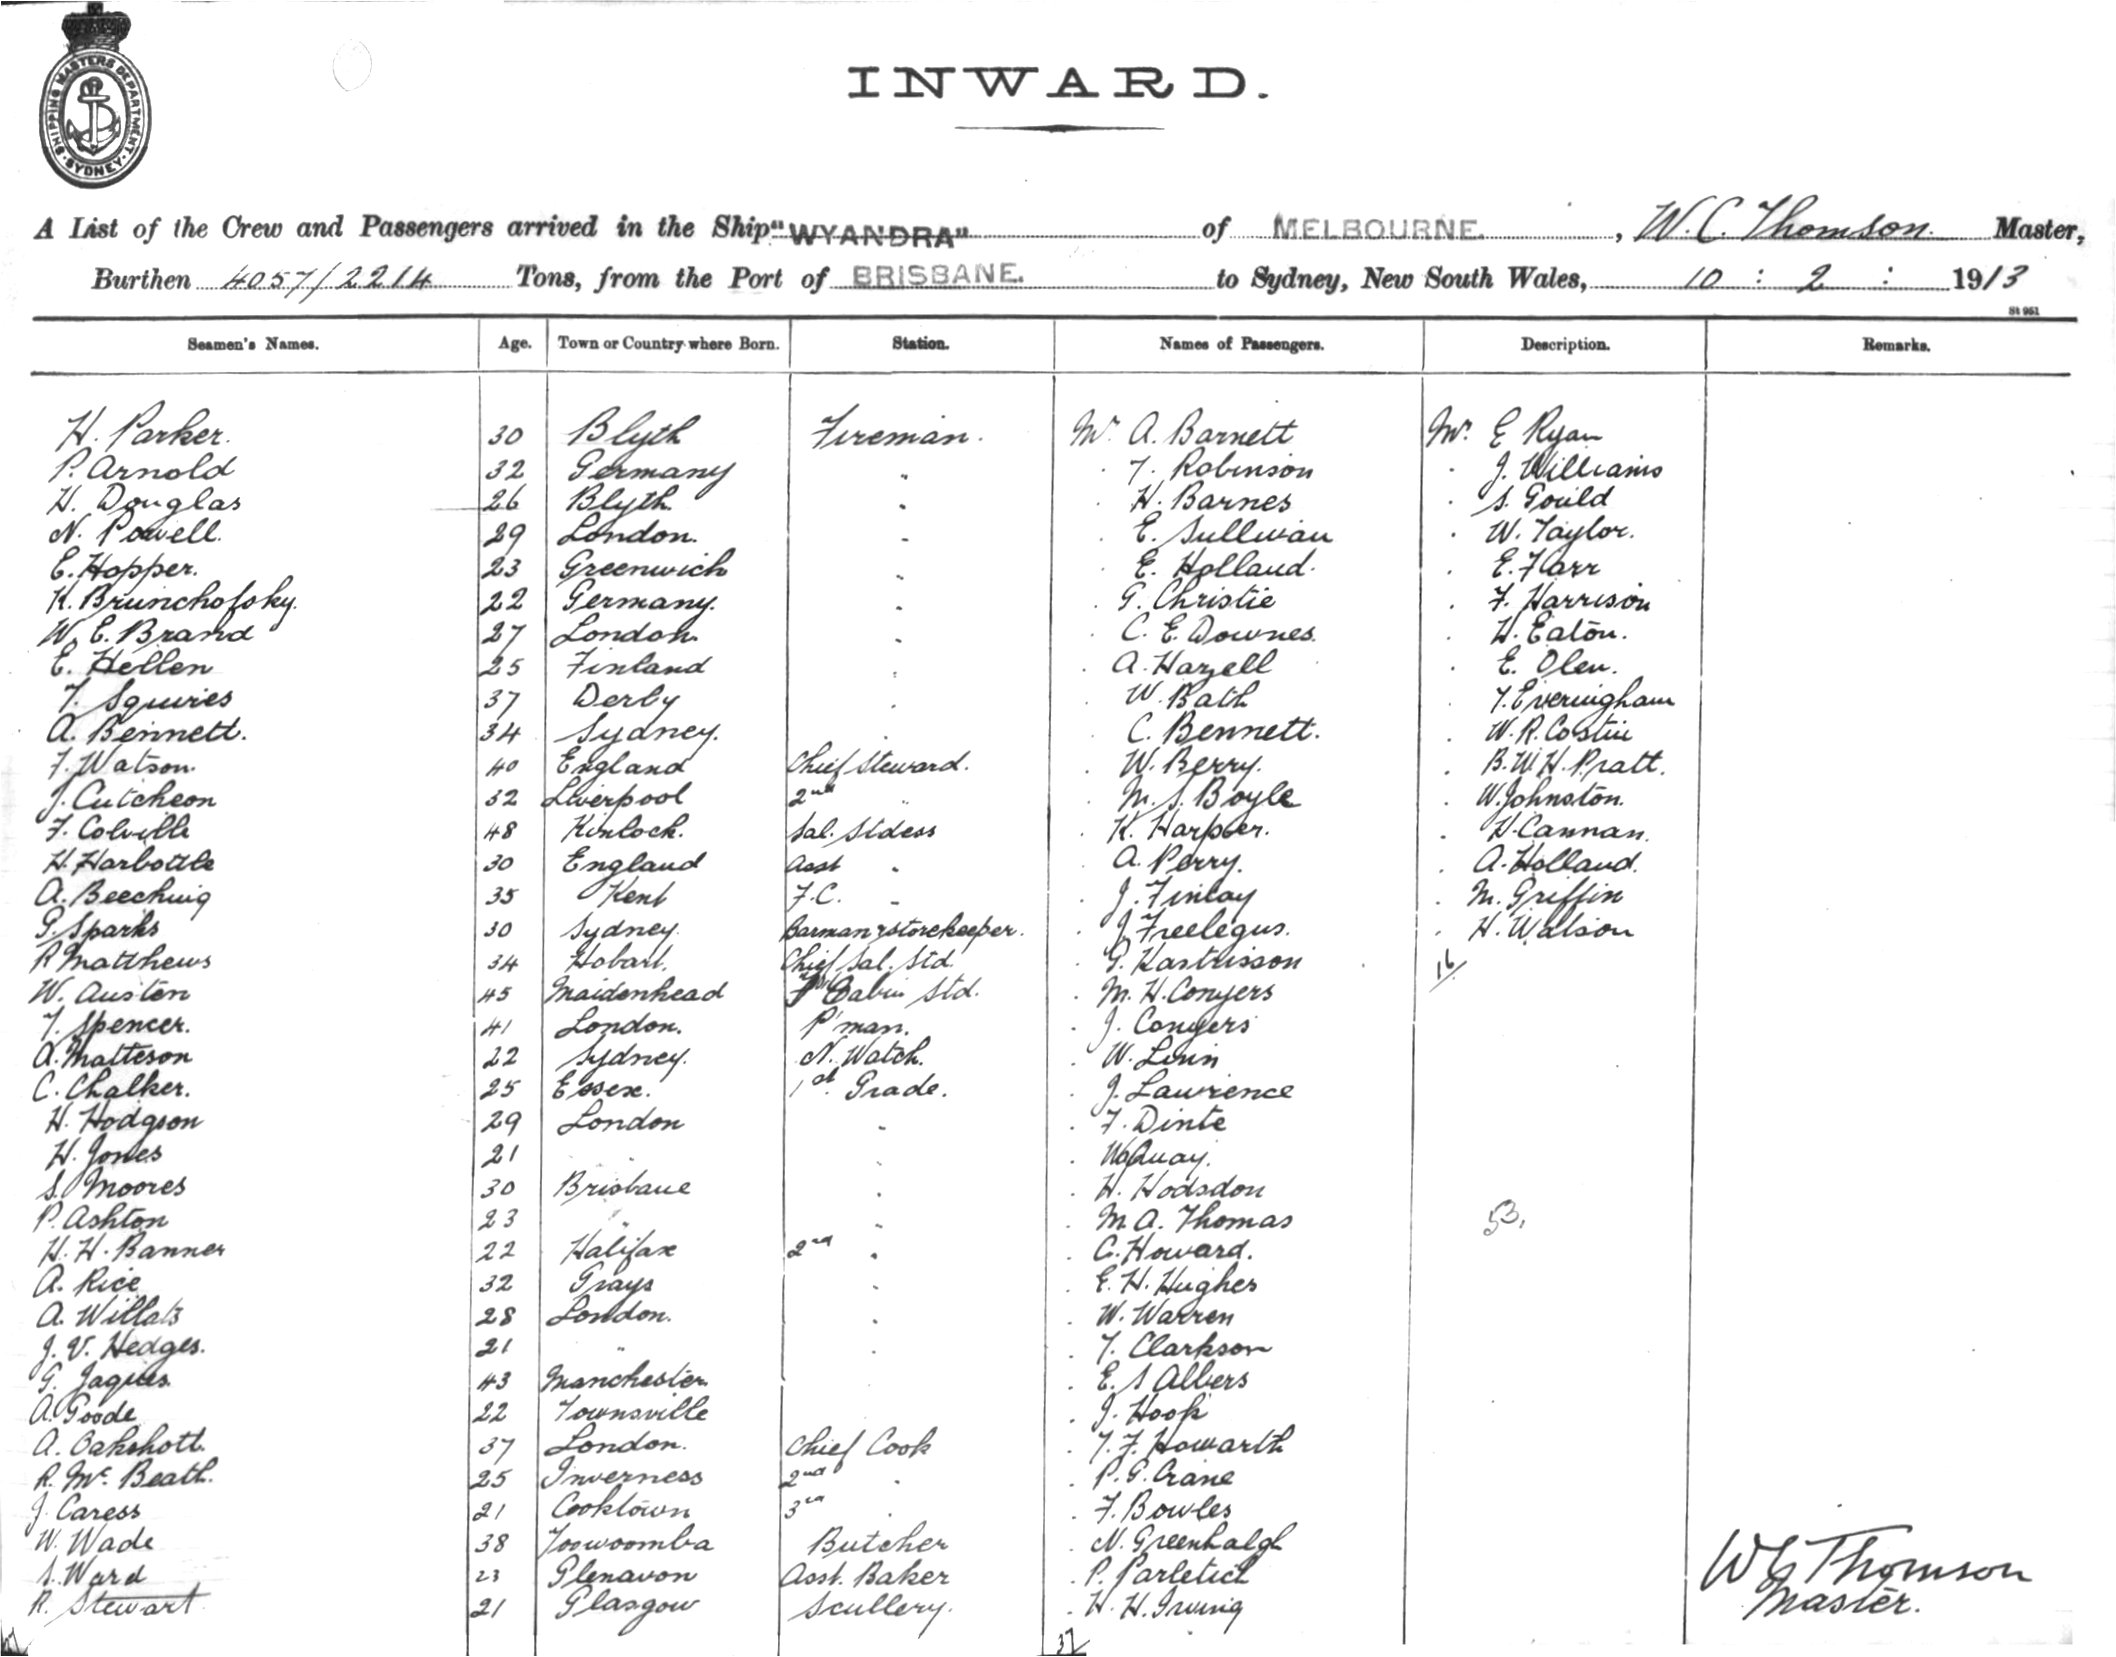 SHIPPING MASTERS DEPARTMENT · SYDNEY ·
INWARD.
A List of the Crew and Passengers arrived in the Ship "WYANDRA" of MELBOURNE. , W. C. Thomson. Master,
Burthen 4057/2214 Tons, from the Port of BRISBANE. to Sydney, New South Wales, 10 : 2 : 1913
St 951
Seamen's Names. Age. Town or Country where Born. Station. Names of Passengers. Description. Remarks.
H. Parker. 30 Blyth Fireman. Mr. A. Barnett Mr. E Ryan
P. Arnold 32 Germany " . T. Robinson . J. Williams
H. Douglas 26 Blyth. " . H. Barnes . S. Gould
N. Powell. 29 London. " . E. Sullivan . W. Taylor.
E. Hopper. 23 Greenwich " . E. Holland. . E. Farr
K. Brunchofsky. 22 Germany. " . G. Christie . F. Harrison
W. E. Brand 27 London. " . C. E. Downes. . H. Eaton.
E. Hellen 25 Finland " . A. Hazell . E. Olen.
T. Squires 37 Derby " . W. Bath . T. Everingham
A. Bennett. 34 Sydney. " . C. Bennett. . W. R. Costin
F. Watson. 40 England Chief Steward. . W. Berry. . B. W. H. Pratt.
J. Cutcheon 32 Liverpool 2nd " . M. S. Boyle . W. Johnston.
F. Colville 48 Kinlock. Sal. Stdess . K. Harper. . H. Cannan.
H. Harbottle 30 England Asst " . A. Perry. . A. Holland.
A. Beeching 35 Kent F.C. " . J. Finlay . M. Griffin
G. Sparks 30 Sydney. Barman & storekeeper. . J. Freelegus. . H. Watson
R Matthews 34 Hobart. Chief Sal. Std. . G. Kastrisson 16/
W. Austen 45 Maidenhead Cabin Std. . M. H. Conyers
T. Spencer. 41 London. P'man. . J. Conyers
A. Matteson 22 Sydney. N. Watch. . W.
C. Chalker. 25 Essex. 1st. Grade. . J. Lawrence
H. Hodgson 29 London " . F. Dinte
H. Jones 21 " " . Quay.
S. Moores 30 Brisbane " . H. Hodsdon
P. Ashton 23 " " . M. A. Thomas 53.
H. H. Banner 22 Halifax 2nd " . C. Howard.
A. Rice 32 Grays " . E. H. Hughes
A. Willats 28 London. " . W. Warren
J. V. Hedges. 21 " " . T. Clarkson
G. Jaques. 43 Manchester . E. S Albers
A. Goode 22 Townsville . J. Hook
A. Oakshott. 37 London. Chief Cook . T. F. Howarth
R. Mc. Beath. 25 Inverness 2nd " . P. G. Crane
J. Caress 21 Cooktown 3rd " . F. Bowles
W. Wade 38 Toowoomba Butcher . N. Greenhalgh
S. Ward 23 Glenavon Asst. Baker . P. Parletich
R. Stewart 21 Glasgow Scullery. . H. H. Irving
37/
W C Thomson
Master.